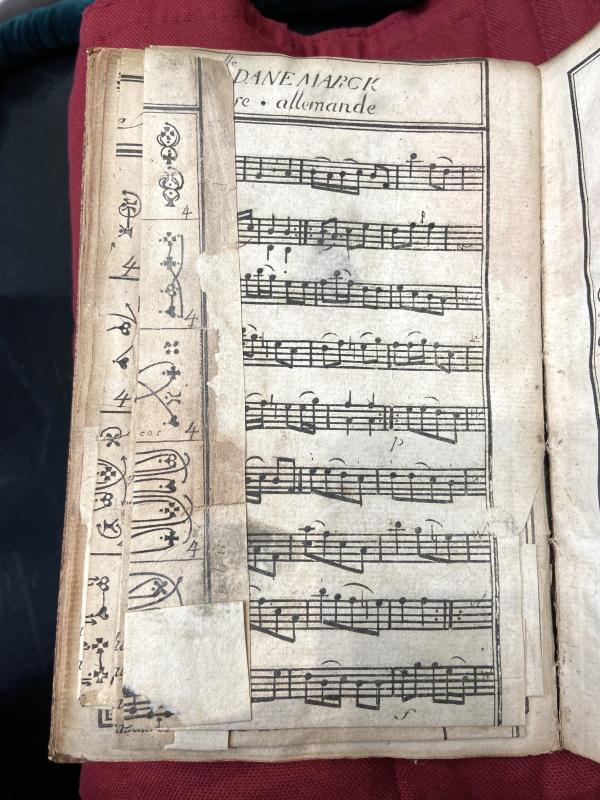 lle
DANEMARCK
re • allemande
4
4
4
4
4
4
p
f